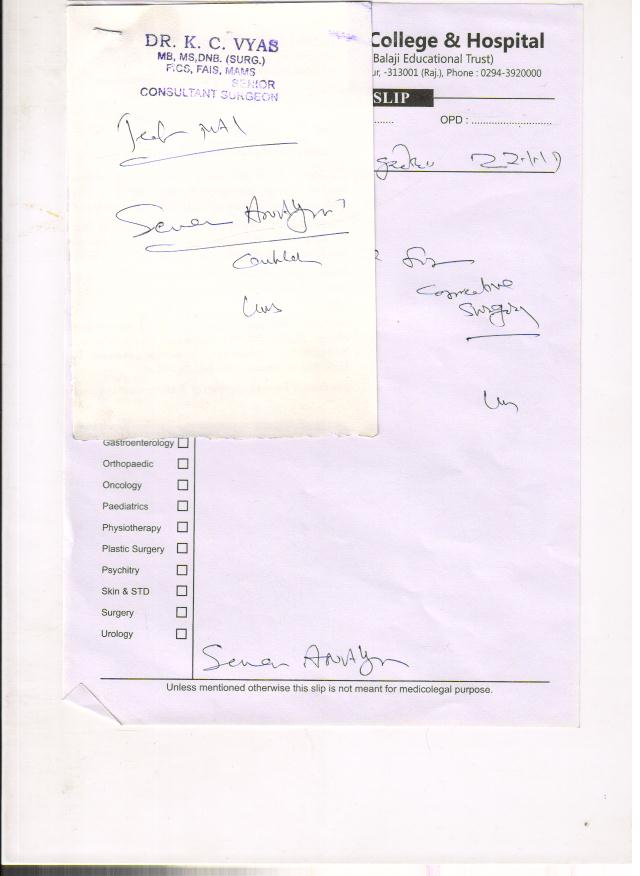 DR. K. C. VYAS
MB, MS,DNB. (SURG.)
FICS, FAIS, MAMS
SENIOR
CONSULTANT SURGEON
Semen Analysis
College & Hospital
Balaji Educational Trust)
ur, -313001 (Raj.), Phone : 0294-3920000
SLIP
OPD : ............................
for
corrective
surgery
Gastroenterology
Orthopaedic
Oncology
Paediatrics
Physiotherapy
Plastic Surgery
Psychitry
Skin & STD
Surgery
Urology
Semen Analysis
Unless mentioned otherwise this slip is not meant for medicolegal purpose.